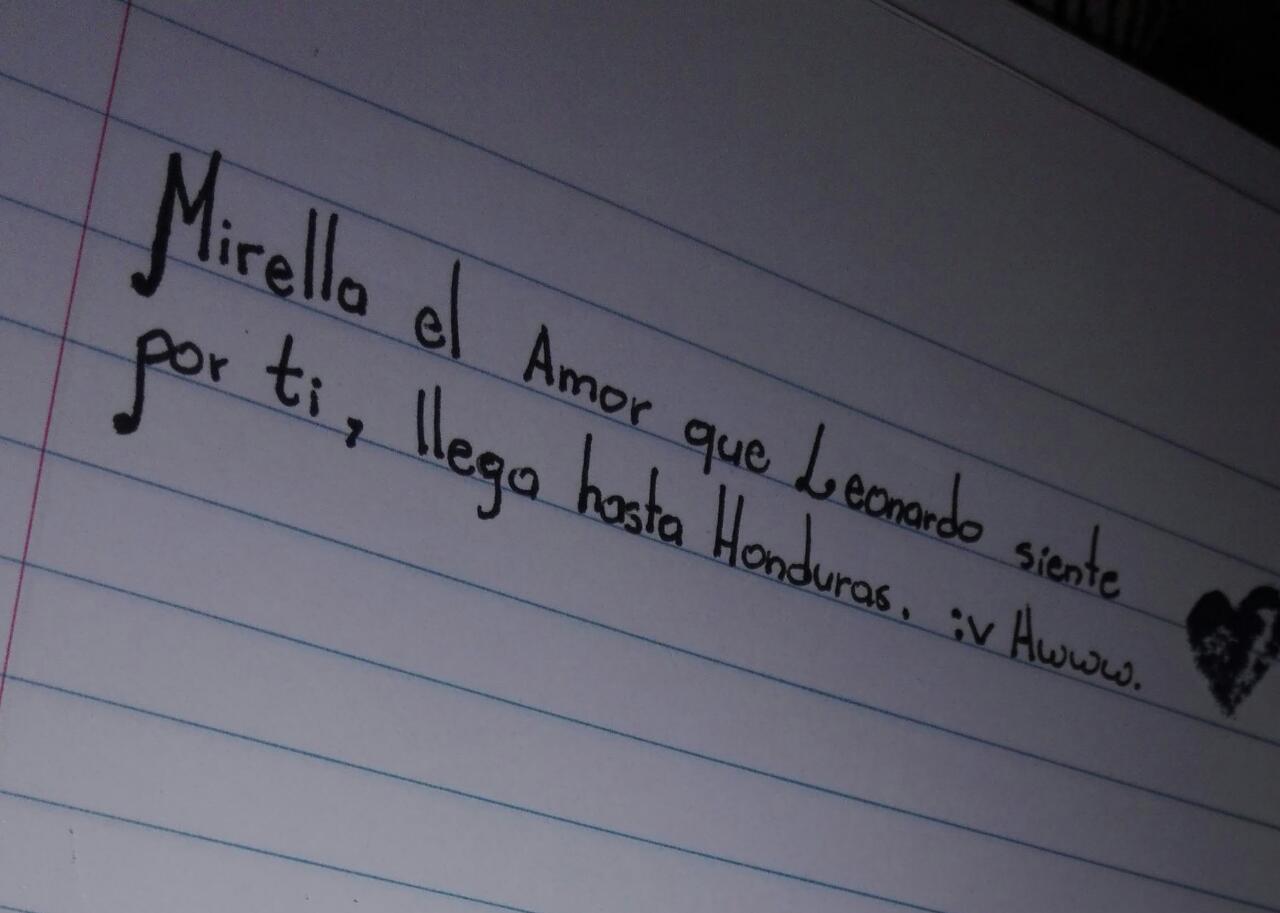 Mirella el Amor que Leonardo siente
por ti, llega hasta Honduras. :v Awww.